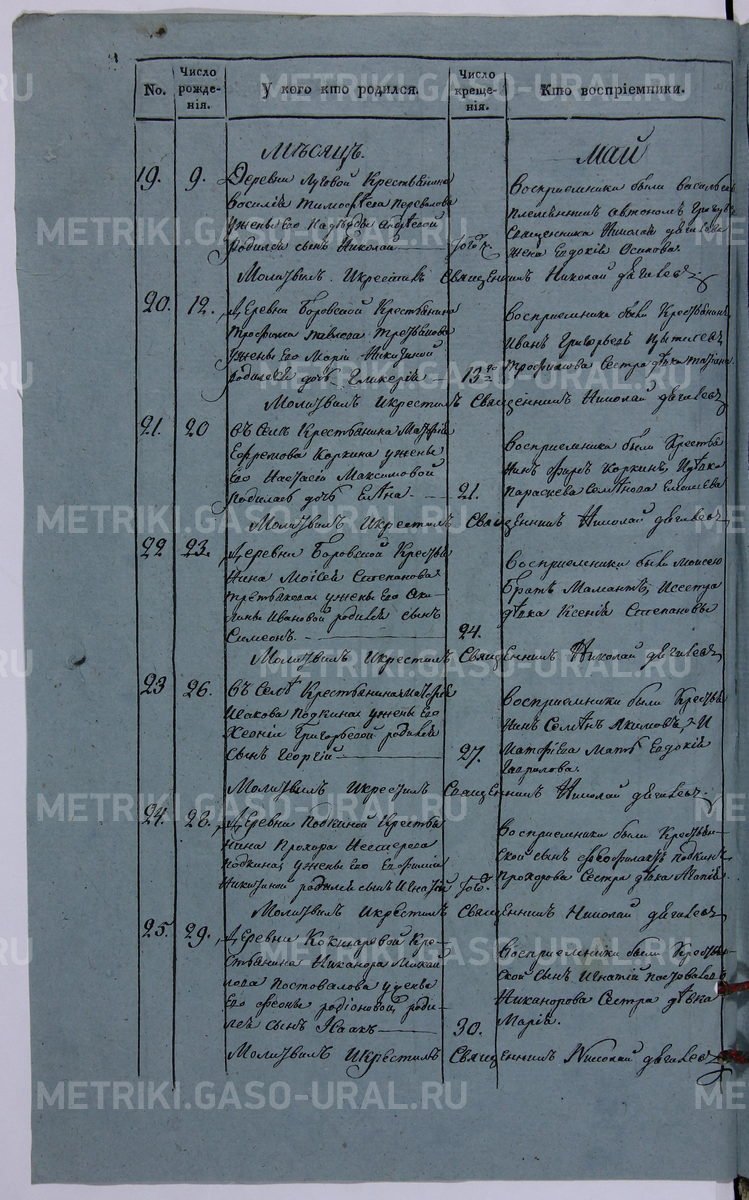 No. Число рожде- нія. У кого кто родился. Число креще- нія. Кто воспріемники.
Мѣсяцъ. Май
19. 9. Деревни Луговой Крестьянина
Василія Тимофѣева Перевалова
ужены Его Надѣжды
родился сынъ Николай того ж.
Восприемники были
племянникъ автономъ
Священника Николая
жена Евдокія Осипова.
Молитвилъ Икрестилъ Священникъ Николай
20. 12. Деревни Боровской Крестьянина
Трофима
ужены Его Маріи Никитиной
родилась дочь Гликерія 13го
Восприемники были Крестьянинъ
Иванъ Григорьевъ
Трофимова Сестра дѣвка Татіана
Молитвилъ Икрестилъ Священникъ Николай
21. 20 Въ Селѣ Крестьянина Матфія
Ефремова Коркина ужены
Его Настасіи Максимовой
родилась дочь Елена. 21.
Восприемники были Крестья
нинъ Коркинъ, Идѣвка
Параскева
Молитвилъ Икрестилъ Священникъ Николай
22 23. Деревни Боровской Крестья
нина Моисея Степанова
Третьякова ужены Его Аку-
лины Ивановой родился сынъ
Симеонъ. 24.
Восприемники были Моисею
братъ Мамантъ, Исестра
дѣвка Ксенія Степановы
Молитвилъ Икрестилъ Священникъ Николай
23 26. Въ Селѣ Крестьянина
Исакова Подкина ужены Его
Ксеніи Григорьевой родился
Сынъ Георгій 27.
Восприемники были Крестья
нинъ Семенъ Якимовъ, И
Матфіева Мать Евдокія
Гаврилова.
Молитвилъ Икрестилъ Священникъ Николай
24. 28. Деревни Подкиной Крестья
нина Прохора Нестерова
Подкина, ужены Его Евфиміи
Никитиной родился сынъ Игнатій того.
Восприемники были Крестьян-
ской сынъ Феофилактъ Подкинъ
Прохорова Сестра дѣвка Марія.
Молитвилъ Икрестилъ Священникъ Николай
25. 29. Деревни Кокшаровой Кре-
стьянина Никанора Михай
лова Постовалова ужены
Его Родіоновой, роди
лся сынъ Исаакъ 30.
Восприемники были Крестьян-
ской Сынъ Игнатій Постоваловъ
Никанорова Сестра дѣвка
Марія.
Молитвилъ Икрестилъ Священникъ Николай
METRIKI.GASO-URAL.RU